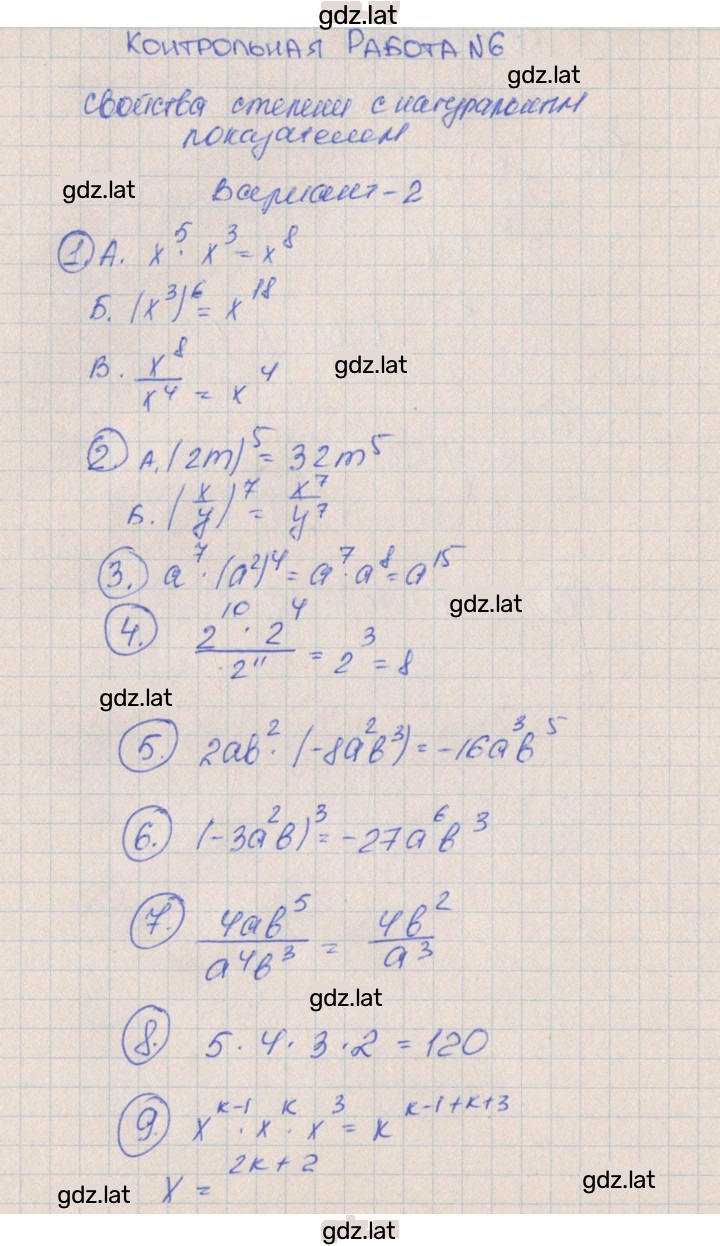 gdz.lat
КОНТРОЛЬНАЯ РАБОТА №6
gdz.lat
свойства степени с натуральным
показателем
gdz.lat
Вариант-2
1. А. x⁵ · x³ = x⁸
Б. (x³)⁶ = x¹⁸
В. x⁸/x⁴ = x⁴
gdz.lat
2. А. (2m)⁵ = 32m⁵
Б. (x/y)⁷ = x⁷/y⁷
3. a⁷ · (a²)⁴ = a⁷ · a⁸ = a¹⁵
gdz.lat
4. 2¹⁰ · 2⁴/2¹¹ = 2³ = 8
gdz.lat
5. 2ab² · (-8a²b³) = -16a³b⁵
6. (-3a²b)³ = -27a⁶b³
7. 4ab⁵/a⁴b³ = 4b²/a³
gdz.lat
8. 5 · 4 · 3 · 2 = 120
9. x^(k-1) · x^k · x³ = x^(k-1+k+3)
x = 2k+2
gdz.lat
gdz.lat
gdz.lat